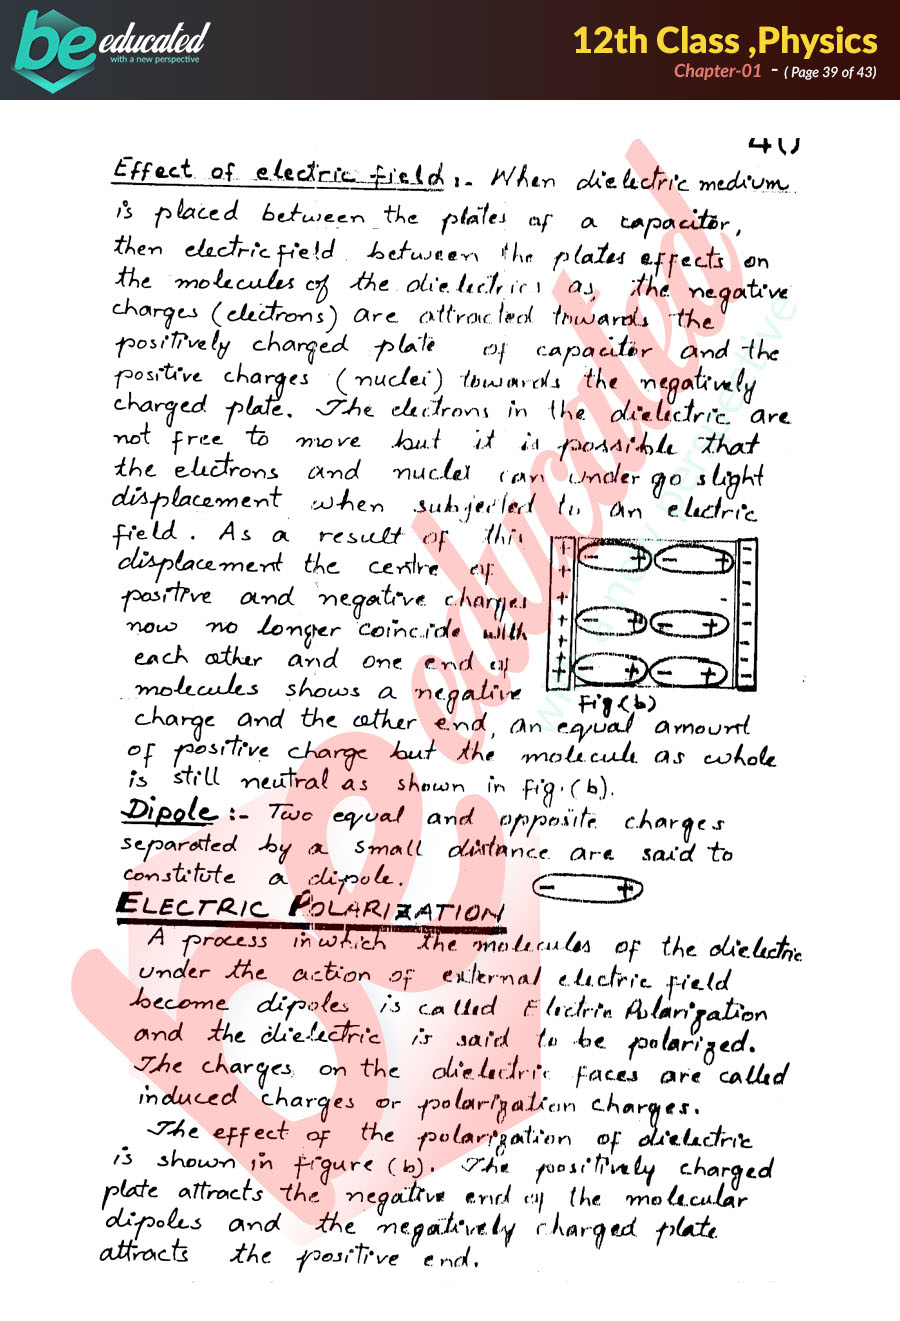 be educated
with a new perspective
12th Class ,Physics
Chapter-01 - ( Page 39 of 43)
40
Effect of electric field :- When dielectric medium
is placed between the plates of a capacitor,
then electric field between the plates effects on
the molecules of the dielectrics as, the negative
charges (electrons) are attracted towards the
positively charged plate of capacitor and the
positive charges (nuclei) towards the negatively
charged plate. The electrons in the dielectric are
not free to move but it is possible that
the electrons and nuclei can under go slight
displacement when subjected to an electric
field. As a result of this
displacement the centre of
positive and negative charges
now no longer coincide with
each other and one end of
molecules shows a negative
Fig(b)
charge and the other end, an equal amount
of positive charge but the molecule as whole
is still neutral as shown in fig.(b).
Dipole :- Two equal and opposite charges
separated by a small distance are said to
constitute a dipole.
ELECTRIC POLARIZATION
A process in which the molecules of the dielectric
under the action of external electric field
become dipoles is called Electric Polarization
and the dielectric is said to be polarized.
The charges on the dielectric faces are called
induced charges or polarization charges.
The effect of the polarization of dielectric
is shown in figure (b). The positively charged
plate attracts the negative end of the molecular
dipoles and the negatively charged plate
attracts the positive end.
be educated
with a new perspective